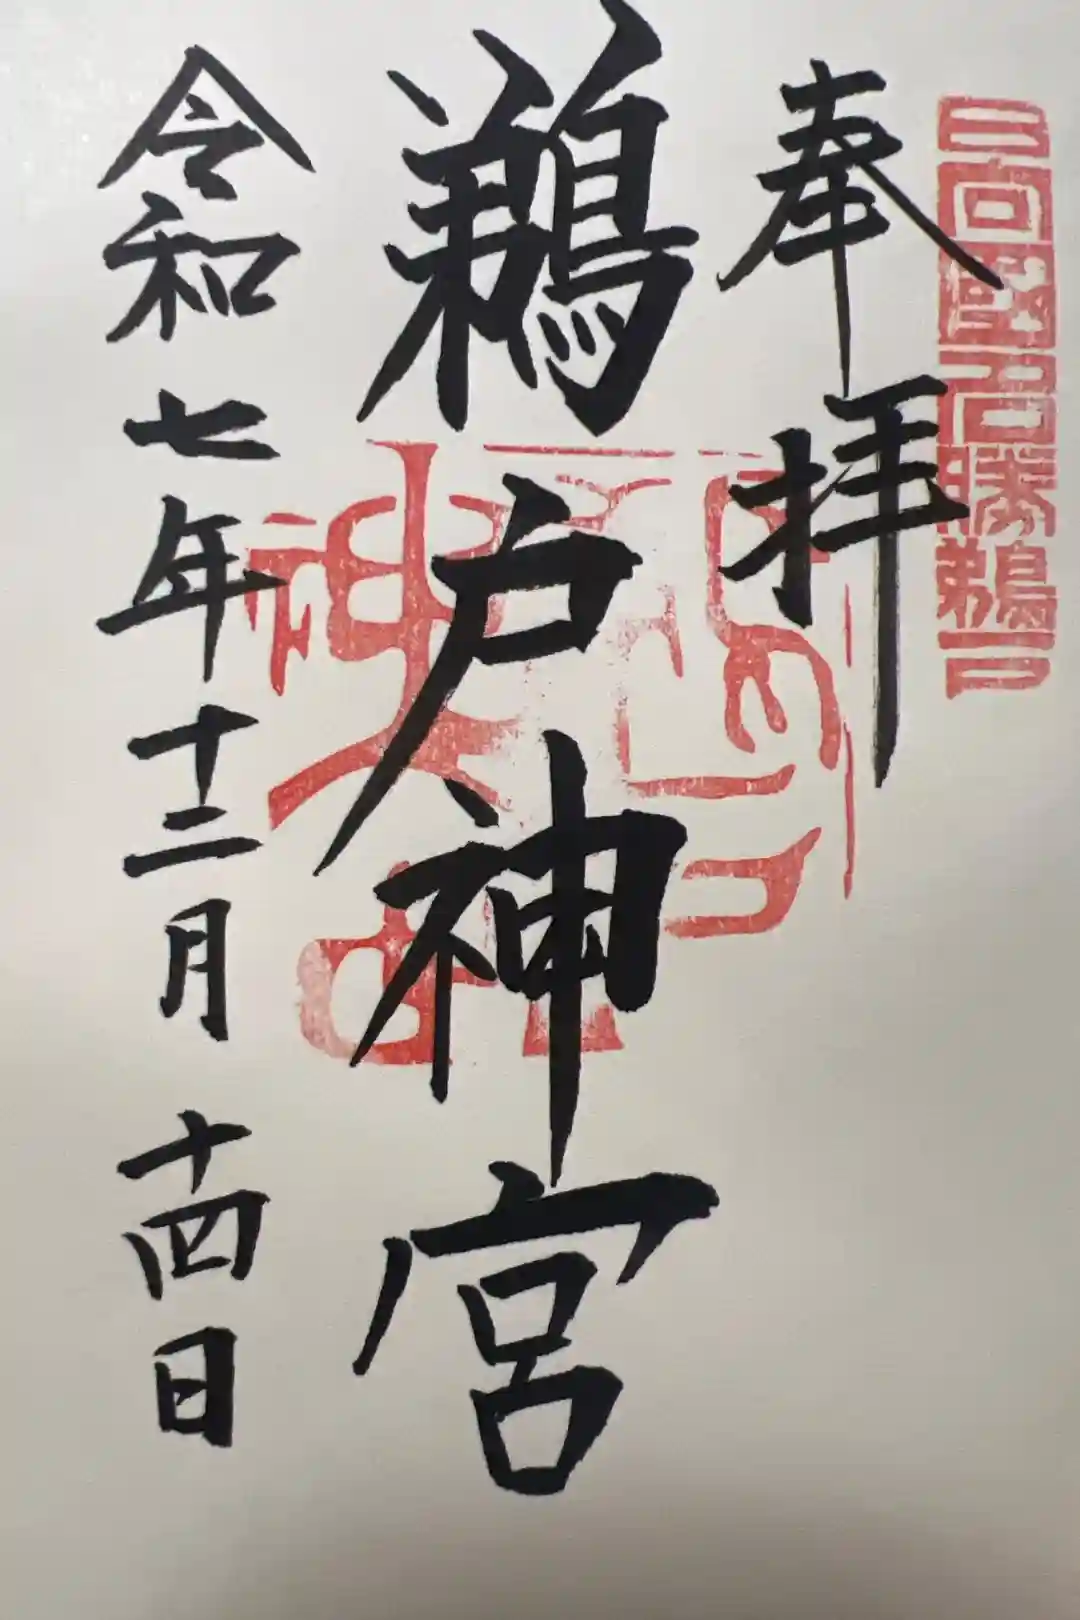 日向國吾勝鵜戸
奉拝
鵜戸神宮
令和七年十二月十四日